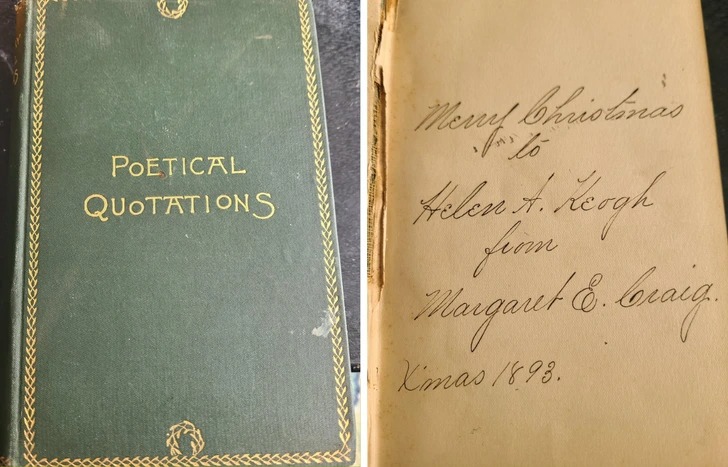 POETICAL
QUOTATIONS
Merry Christmas
to
Helen A. Keogh
from
Margaret E. Craig.
X'mas 1893.